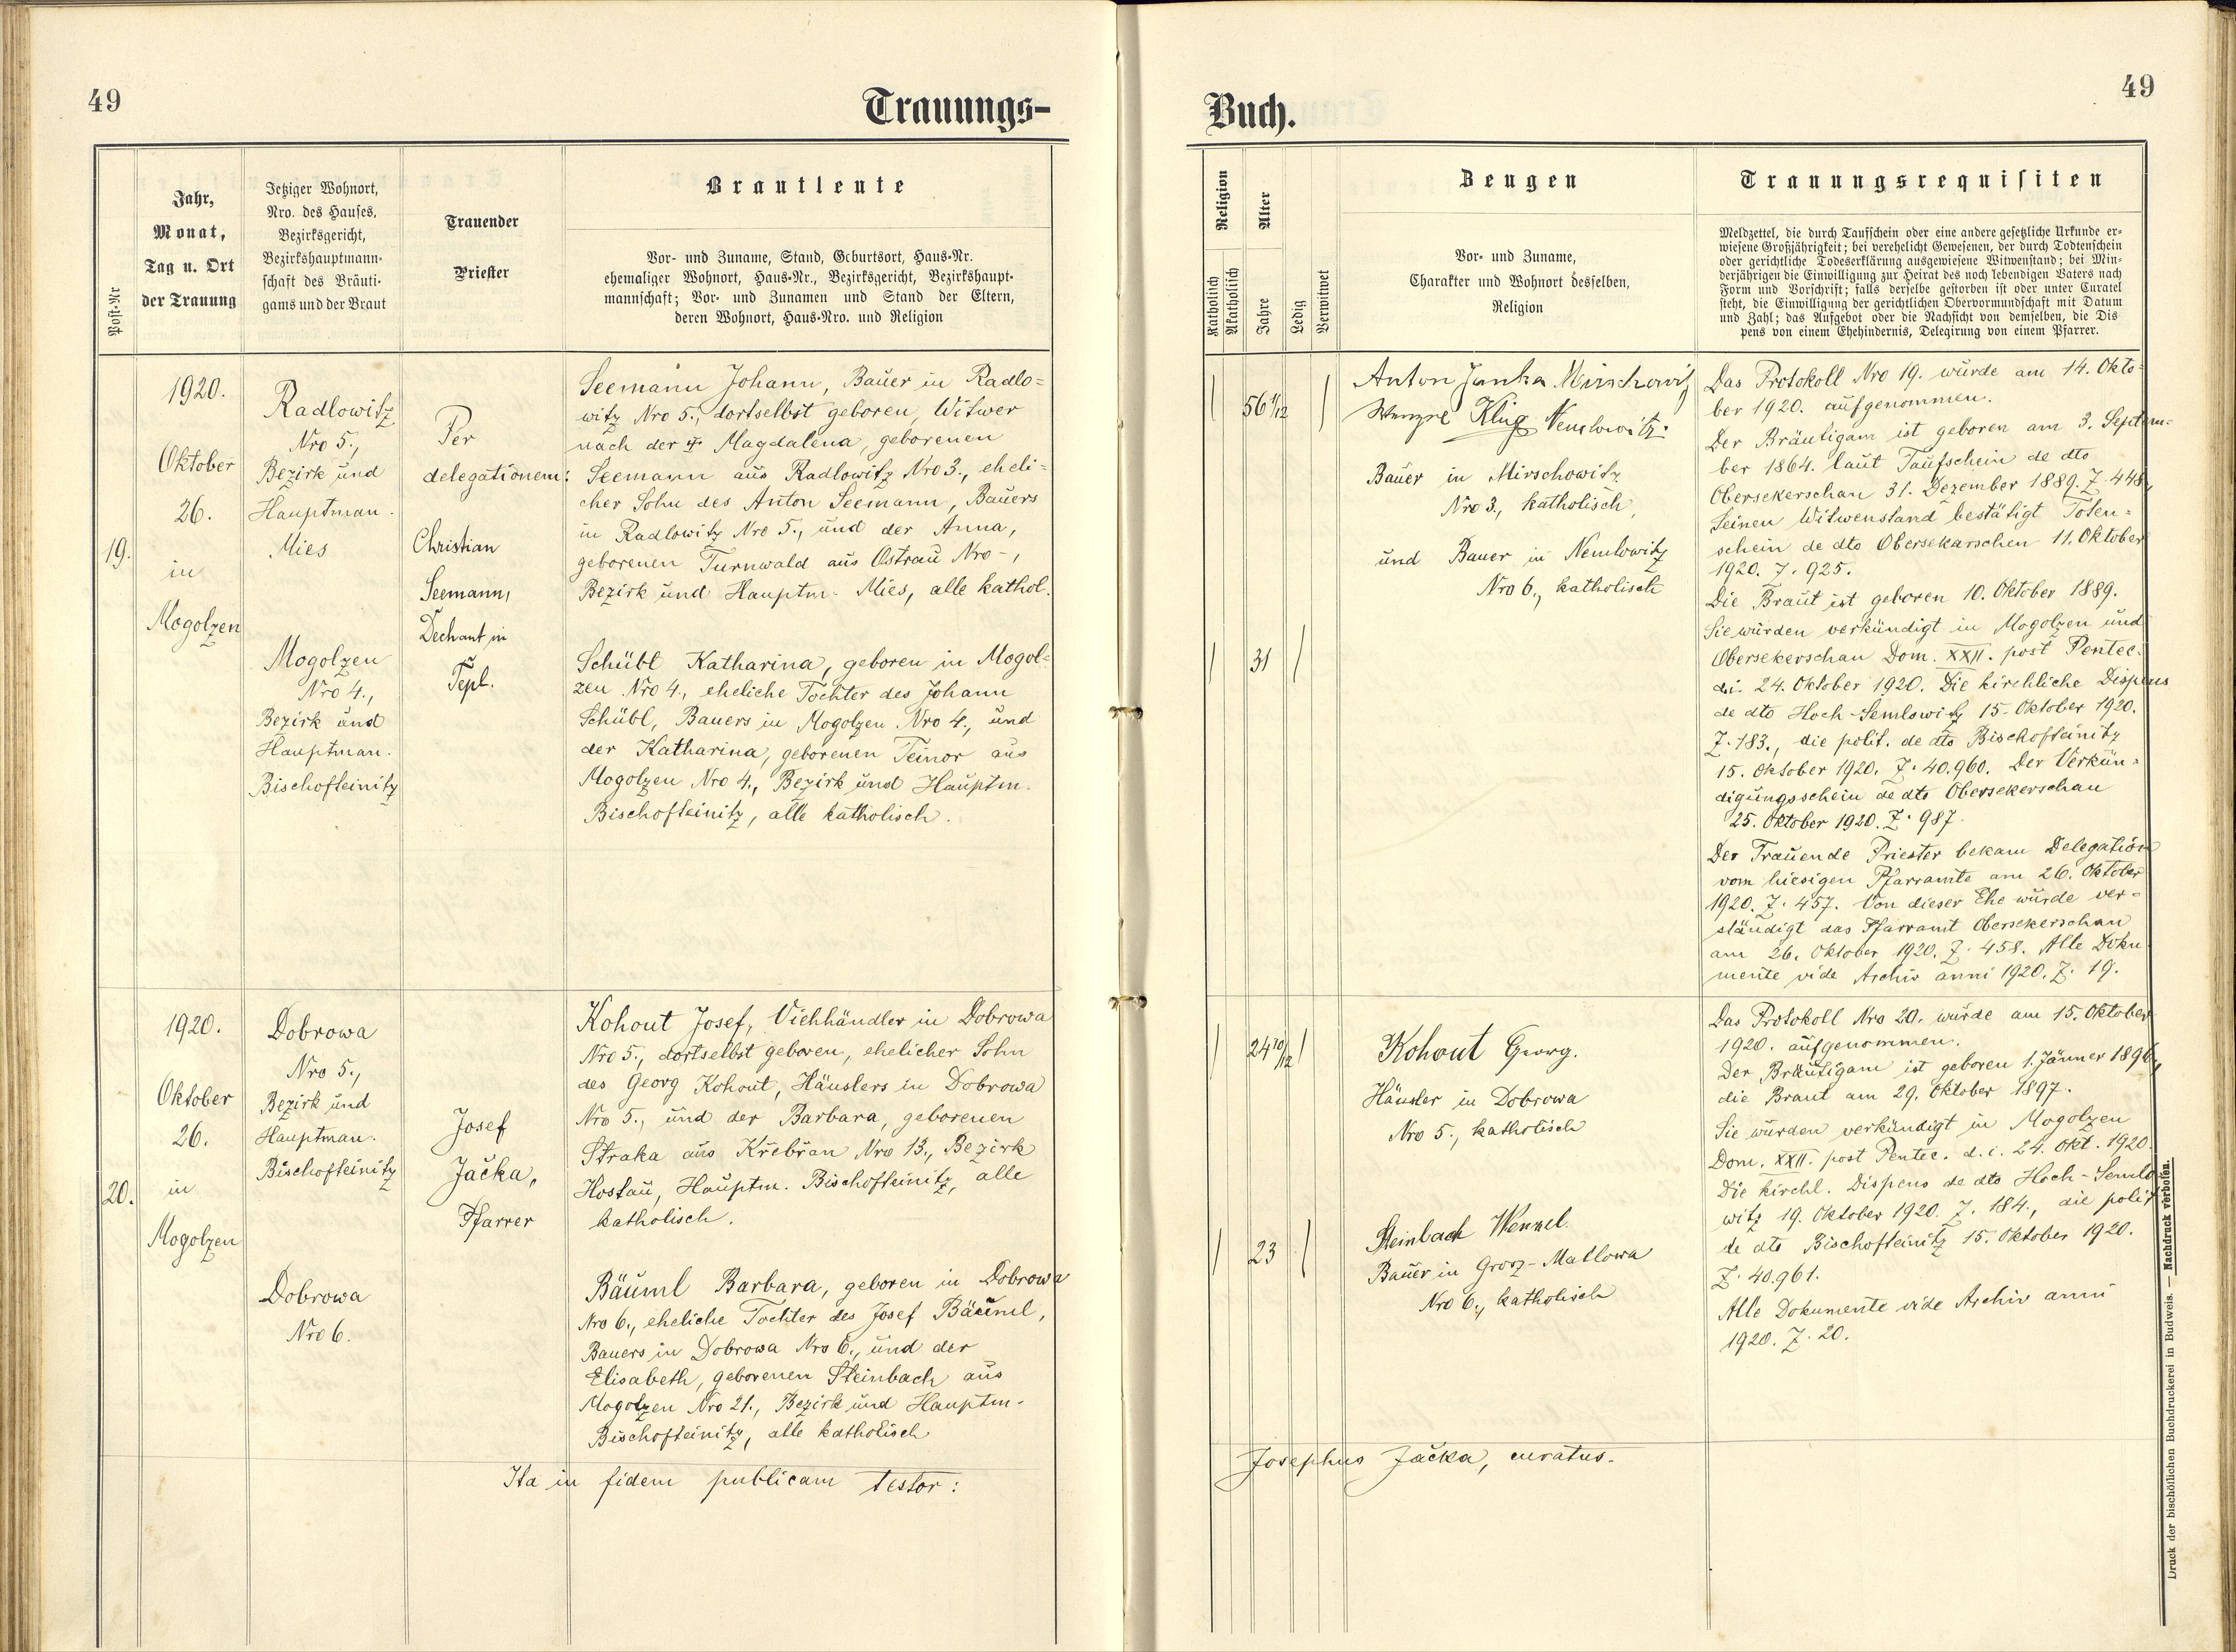 49
Trauungs-
Post-Nr
Jahr,
Monat,
Tag u. Ort
der Trauung
Jetziger Wohnort,
Nro. des Hauses,
Bezirksgericht,
Bezirkshauptmann-
schaft des Bräuti-
gams und der Braut
Trauender
Priester
Brautleute
Vor- und Zuname, Stand, Geburtsort, Haus-Nr.
ehemaliger Wohnort, Haus-Nr., Bezirksgericht, Bezirkshaupt-
mannschaft; Vor- und Zunamen und Stand der Eltern,
deren Wohnort, Haus-Nro. und Religion
19.
1920.
Oktober
26.
in
Mogolzen
Radlowitz
Nro 5.,
Bezirk und
Hauptman.
Mies
Mogolzen
Nro 4.,
Bezirk und
Hauptman.
Bischofteinitz
Per
delegationem:
Christian
Seemann,
Dechant in
Tepl.
Seemann Johann, Bauer in Radlo=
witz Nro 5., dortselbst geboren, Witwer
nach der † Magdalena, geborenen
Seemann aus Radlowitz Nro 3., eheli=
cher Sohn des Anton Seemann, Bauers
in Radlowitz Nro 5., und der Anna,
geborenen Turnwald aus Ostrau Nro -,
Bezirk und Hauptm. Mies, alle kathol.
Schübl Katharina, geboren in Mogol=
zen Nro 4., eheliche Tochter des Johann
Schübl, Bauers in Mogolzen Nro 4., und
der Katharina, geborenen Teinor aus
Mogolzen Nro 4., Bezirk und Hauptm.
Bischofteinitz, alle katholisch.
20.
1920.
Oktober
26.
in
Mogolzen
Dobrowa
Nro 5.,
Bezirk und
Hauptman.
Bischofteinitz
Dobrowa
Nro 6.
Josef
Jačka,
Pfarrer
Kohout Josef, Viehhändler in Dobrowa
Nro 5., dortselbst geboren, ehelicher Sohn
des Georg Kohout, Häuslers in Dobrowa
Nro 5., und der Barbara, geborenen
Straka aus Křebřan Nro 13., Bezirk
Hostau, Hauptm. Bischofteinitz, alle
katholisch.
Bäuml Barbara, geboren in Dobrowa
Nro 6., eheliche Tochter des Josef Bäuml,
Bauers in Dobrowa Nro 6., und der
Elisabeth, geborenen Steinbach aus
Mogolzen Nro 21., Bezirk und Hauptm.
Bischofteinitz, alle katholisch
Ita in fidem publicam testor:
49
Buch.
Religion
Katholisch
Akatholisch
Alter
Jahre
Ledig
Verwitwet
Zeugen
Vor- und Zuname,
Charakter und Wohnort desselben,
Religion
Trauungsrequisiten
Meldzettel, die durch Taufschein oder eine andere gesetzliche Urkunde er-
wiesene Großjährigkeit; bei verehelicht Gewesenen, der durch Todtenschein
oder gerichtliche Todeserklärung ausgewiesene Witwenstand; bei Min-
derjährigen die Einwilligung zur Heirat des noch lebendigen Vaters nach
Form und Vorschrift; falls derselbe gestorben ist oder unter Curatel
steht, die Einwilligung der gerichtlichen Obervormundschaft mit Datum
und Zahl; das Aufgebot oder die Nachsicht von demselben, die Dis
pens von einem Ehehindernis, Delegirung von einem Pfarrer.
56 1/12
31
Anton Janka Mirschowitz
Wenzel Klug Nemlowitz.
Bauer in Mirschowitz
Nro 3., katholisch,
und Bauer in Nemlowitz
Nro 6., katholisch
Das Protokoll Nro 19. wurde am 14. Okto=
ber 1920. aufgenommen.
Der Bräutigam ist geboren am 3. Septem=
ber 1864. laut Taufschein de dto
Obersekerschan 31. Dezember 1889. Z. 448,
Seinen Witwenstand bestätigt Toten=
schein de dto Obersekarschen 11. Oktober
1920. Z. 925.
Die Braut ist geboren 10. Oktober 1889.
Sie wurden verkündigt in Mogolzen und
Obersekerschan Dom. XXII. post Pentec.
d.i. 24. Oktober 1920. Die kirchliche Dispens
de dto Hoch-Semlowitz 15. Oktober 1920.
Z. 183., die polit. de dto Bischofteinitz
15. Oktober 1920. Z. 40.960. Der Verkün=
digungsschein de dto Obersekerschan
25. Oktober 1920. Z. 987.
Der Trauende Priester bekam Delegation
vom hiesigen Pfarramte am 26. Oktober
1920. Z. 457. Von dieser Ehe wurde ver=
ständigt das Pfarramt Obersekerschan
am 26. Oktober 1920. Z. 458. Alle Doku
mente vide Archiv anni 1920. Z. 19.
24 10/12
23
Kohout Georg.
Häusler in Dobrowa
Nro 5., katholisch
Steinbach Wenzel.
Bauer in Grosz-Mallowa
Nro 6., katholisch
Das Protokoll Nro 20. wurde am 15. Oktober
1920. aufgenommen.
Der Bräutigam ist geboren 1. Jänner 1896,
die Braut am 29. Oktober 1897.
Sie wurden verkündigt in Mogolzen
Dom. XXII. post Pentec. d.i. 24. Okt. 1920.
Die kirchl. Dispens de dto Hoch-Semlo
witz 19. Oktober 1920. Z. 184., die polit
de dto Bischofteinitz 15. Oktober 1920.
Z. 40.961.
Alle Dokumente vide Archiv anni
1920. Z. 20.
Josephus Jačka, curatus.
Druck der bischöflichen Buchdruckerei in Budweis. — Nachdruck verboten.